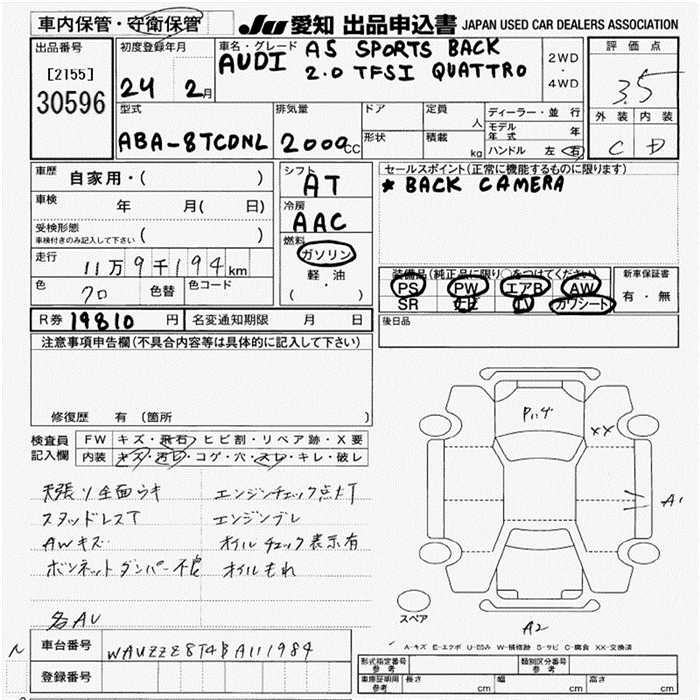 車内保管・守衛保管
JU 愛知 出品申込書 JAPAN USED CAR DEALERS ASSOCIATION
出品番号
[2155]
30596
初度登録年月
24 2月
車名・グレード
AUDI A5 SPORTS BACK
2.0 TFSI QUATTRO
2WD
・
4WD
評価点
3.5
外装 内装
C D
型式
ABA-8TCDNL
排気量
2000cc
ドア
形状
定員
人
積載
kg
ディーラー・並行
モデル年式 年
ハンドル 左 右
車歴
自家用・( )
車検 年 月( 日)
受検形態
車検付きのみ記入して下さい ( )
走行
11万9千194km
色 クロ 色替 色コード
R券 19810 円 名変通知期限 月 日
シフト
AT
冷房
AAC
燃料
ガソリン
軽・油
( ・ )
セールスポイント(正常に機能するものに限ります)
* BACK CAMERA
装備品(純正品に限り○をつけてください)
PS PW エアB AW
SR ナビ TV カワシート
新車保証書
有・無
後日品
注意事項申告欄(不具合内容等は具体的に記入して下さい)
修復歴 有(箇所 )
検査員
記入欄
FW キズ・飛石・ヒビ割・リペア跡・X要
内装 キズ・汚レ・コゲ・穴・スレ・キレ・破レ
天張り全面ウキ エンジンチェック点灯
スタッドレスT エンジンブレ
AWキズ オイルチェック表示有
ボンネットダンパー不良 オイルもれ
名AU
N
車台番号 WAUZZZ8T4BA111984
登録番号
XX
A1
スペア
A2
A-キズ E-エクボ U-凹み W-補修跡 S-サビ C-腐食 XX-交換済
形式指定番号 参考 類別区分番号 参考
車庫証明用 参考 長さ cm 幅 cm 高さ cm